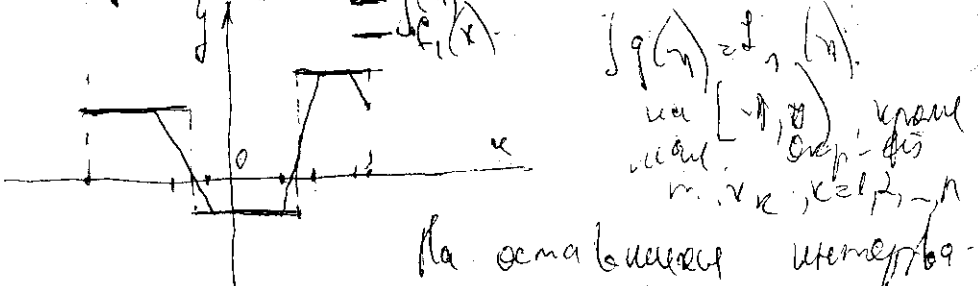 y
f₁(x).
∫ g(x) = f₁(x).
на [-π, π), кроме
мал. окр-тей
т. xₖ, k=1,2,…,n
0
x
На оставшихся интерва-